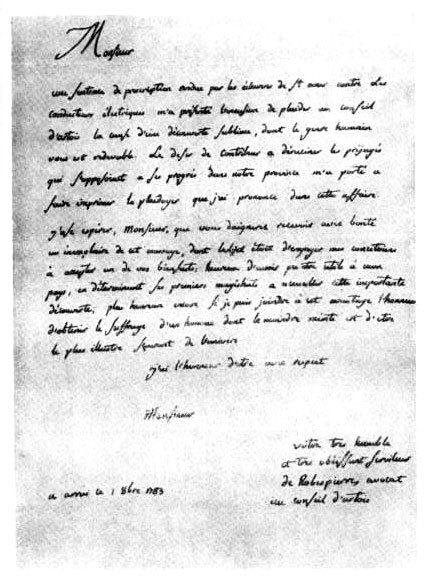 Monsieur
une sentence de proscription rendue par les échevins de St omer contre les
conducteurs électriques m'a présenté l'occasion de plaider au conseil
d'artois la cause d'une découverte sublime, dont le genre humain
vous est redevable. Le desir de contribuer a déraciner les préjugés
qui s'opposoient a ses progrès dans notre province m'a porté a
faire imprimer le plaidoyer que j'ai prononcé dans cette affaire.
j'ose espérer, Monsieur, que vous daignerez recevoir avec bonté
un exemplaire de cet ouvrage, dont l'objet étoit d'engager mes concitoiens
à accepter un de vos bienfaits; heureux d'avoir pu être utile à mon
pays, en déterminant ses premiers magistrats a accueillir cette importante
découverte; plus heureux encore si je puis joindre à cet avantage l'honneur
d'obtenir le suffrage d'un homme dont le moindre mérite est d'etre
le plus illustre sçavant de l'univers
j'ai l'honneur d'etre avec respect
Monsieur
votre tres humble
et tres obéissant serviteur
de Robespierre avocat
au conseil d'artois
a arras le 1 8bre 1783